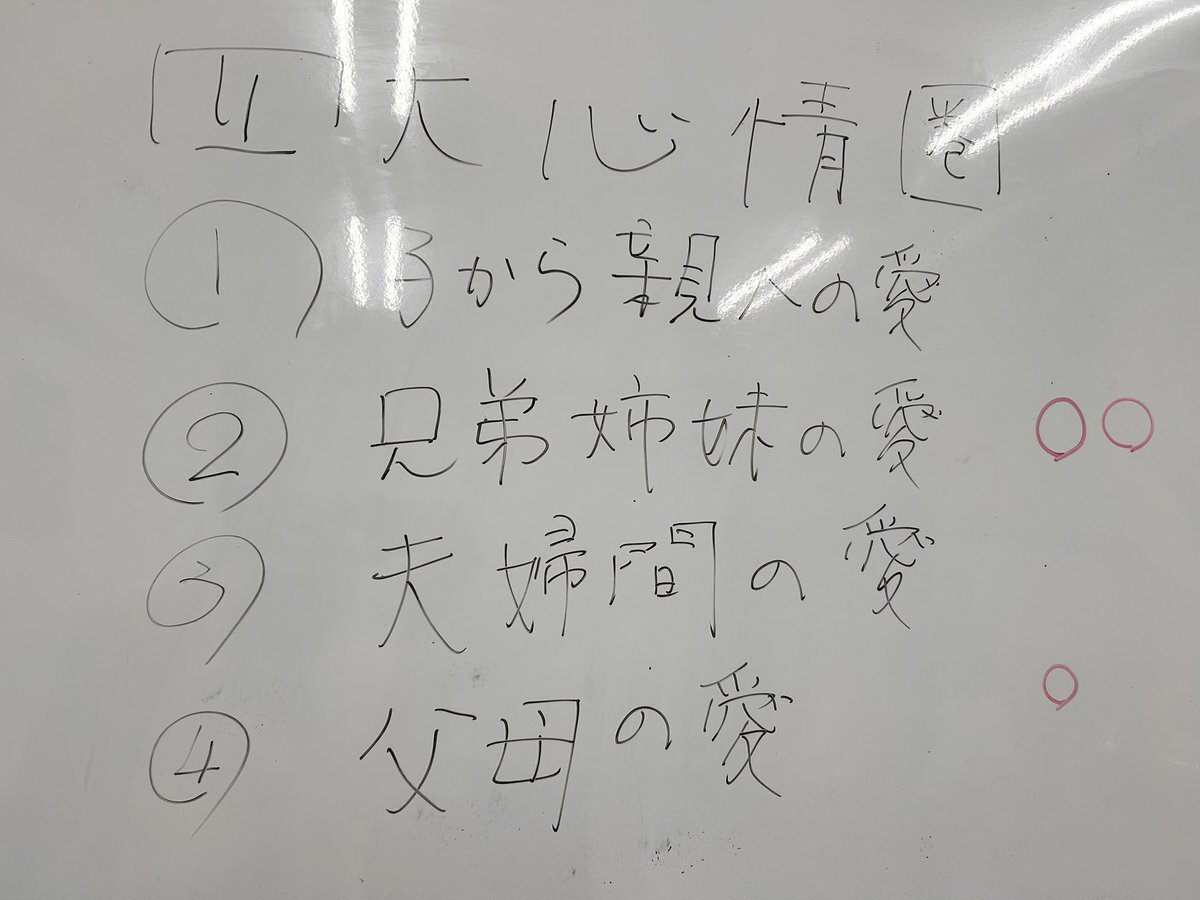 四大心情圏
① 子から親への愛
② 兄弟姉妹の愛 ○○
③ 夫婦間の愛
④ 父母の愛 ○